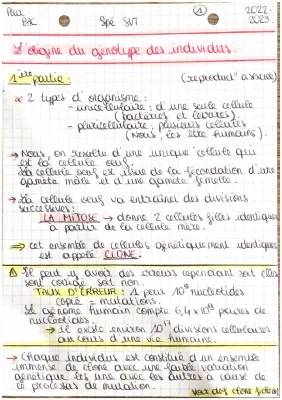 Pour BAC
Spé SVT
1
2022-2023
L'origine du génotype des individus.
1ère partie : (reproduct° asexuée)
2 types d'organisme :
- unicellulaire : d'une seule cellule
(bactéries et levures).
- pluricellulaire : plusieurs cellules
(nous, les être humains).
→ Nous on resulte d'une unique cellule qui
est la cellule oeuf.
La cellule oeuf est issue de la fécondation d'une
gamète mâle et d'une gamète femelle.
→ La cellule oeuf va entraîner des divisions
successives :
LA MITOSE → donne 2 cellules filles identiques
à partir de la cellule mère.
⇒ cet ensemble de cellules génétiquement identiques
est appelé CLONE.
Il peut y avoir des erreurs cependant soit elles
sont corrigé soit non.
TAUX D'ERREUR : 1 pour 10⁹ nucléotides
copié = mutations.
Le génome humain compte 6,4 x 10⁹ paires de
nucléotides.
→ Il existe environ 10¹⁷ divisions cellulaires
au cours d'une vie humaine.
→ Chaque individus est constitué d'un ensemble
immense de clone avec une faible variation
génétique les uns avec les autres à cause de
ce processus de mutation.